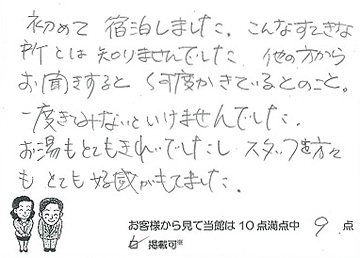 初めて 宿泊しました。こんなすてきな
所とは知りませんでした 他の方から
お聞きすると 何度かきているとのこと。
一度きてみないといけませんでした。
お湯もとてもきれいでしたし スタッフ 方々
も とても 好感がもてました。
お客様から見て当館は10点満点中 9 点
掲載可※